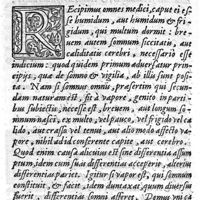 RECipimus omnes medici, caput ei es-
se humidum, aut humidum & fri-
gidum, qui multum dormit: bre-
uem autem somnum siccitati, aut
caliditati cerebri, necessario esse
indicium: quod quidem primum aduersatur prin-
cipijs, quæ de somno & vigilia, ab illu sunt posi-
ta. Nam si somnus omnis, præsertim qui secun-
dam naturam est, fit à vapore, genito in parti-
bus subiectis, necesse est, breuem, aut longum so-
mnum fieri, ex multo, vel pauco, vel frigido vel ca-
lido, aut crasso vel tenui, aut aliomodo affecto va-
pore, nihil ad id conferente capite, aut cerebro.
Quod enim causa alicuius est sine differentia assum-
ptum, idem cum suis differentijs acceperis, alterius
differentias pariet. Igitur si vapor est, qui somnum
constituit, & facit, idem dum taxat, quum diuersus
fuerit, differentias somni afferet. Demus vni ca